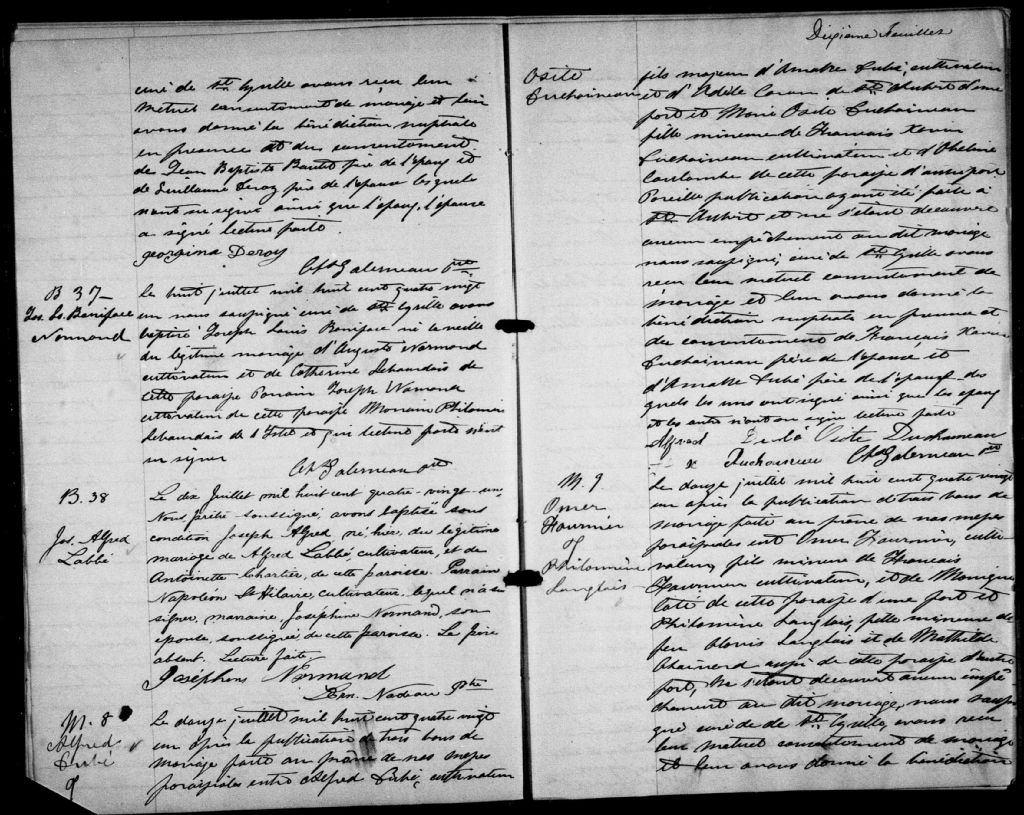 curé de Ste Cyrille avons reçu leur
mutuel consentement de mariage et leur
avons donné la bénédiction nuptiale
en presence et du consentement
de Jean Baptiste père de l'epoux et
de Guillaume Deroy père de l'epouse lesquels
n'ont su signer ainsi que l'epoux, l'epouse
a signé lecture faite.
georgina Deroy
Galerneau Ptre
B 37
Jos. Ls. Boniface
Normand
Le huit juillet mil huit cent quatre vingt
un nous soussigné curé de Ste Cyrille avons
baptisé Joseph Louis Boniface né la veille
du légitime mariage d'Auguste Normand
cultivateur et de Catherine Lebourdais de
cette paroisse Parrain Joseph
cultivateur de cette paroisse Marraine Philomène
Lebourdais de l'Islet et qui lecture faite n'ont
su signer
Galerneau ptre
B. 38
Jos. Alfred
Labbé
Le dix Juillet mil huit cent quatre-vingt-un
Nous prêtre soussigné, avons baptisé sous
condition Joseph Alfred né hier, du légitime
mariage de Alfred Labbé, cultivateur, et de
Antoinette Chartier, de cette paroisse. Parrain
Napoléon St Hilaire, cultivateur, lequel n'a su
signer, marraine, Joséphine Normand, son
epouse, soussignée, de cette paroisse. Le père
absent. Lecture faite
Joséphine Normand
Nadeau Ptre
M. 8
Alfred
Dubé
&
Le douze juillet mil huit cent quatre vingt
un après la publication de trois bans de
mariage faite au prône de nos messes
paroissiales entre Alfred Dubé, cultivateur
Dixième Feuillet
Osite
Duchaineau
fils majeur d'Amable Dubé, cultivateur
et d'Adèle Caron de St Aubert d'une
part et Marie Osite Duchaineau
fille mineure de Francois Xavier
Duchaineau cultivateur et d'
Coulombe de cette paroisse d'autre part
Pareille publication ayant été faite à
St. Aubert et ne s'étant decouvert
aucun empêchement au dit mariage
nous soussigné, curé de Ste Cyrille avons
recu leur mutuel consentement de
mariage et leur avons donné la
bénédiction nuptiale en presence et
du consentement de François Xavier
Duchaineau père de l'epouse et
d'Amable Dubé père de l'epoux les
quels les uns ont signé ainsi que les epoux
et les autres n'ont su signer lecture faite
Alfred Dubé Osite Duchaineau
x Duchaineau Galerneau Ptre
M. 9.
Omer
Fournier
&
Philomène
Langlois
Le douze juillet mil huit cent quatre vingt
un après la publication de trois bans de
mariage faite au prône de nos messes
paroissiales est Omer Fournier, culti
vateur, fils mineur de Francois
Fournier cultivateur, et de Monique
de cette paroisse d'une part et
Philomène Langlois, fille mineure de
feu Clovis Langlois et de Mathilde
Chainard aussi de cette paroisse d'autre
part, Ne s'étant decouvert aucun empê
chement au dit mariage, nous soussi
gné curé de Ste Cyrille, avons recu
leur mutuel consentement de mariage
et leur avons donné la bénédiction